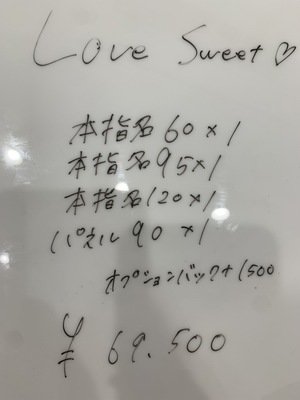 Love Sweet♡
本指名60×1
本指名95×1
本指名120×1
パネル90×1
オプションバック+1500
¥69.500